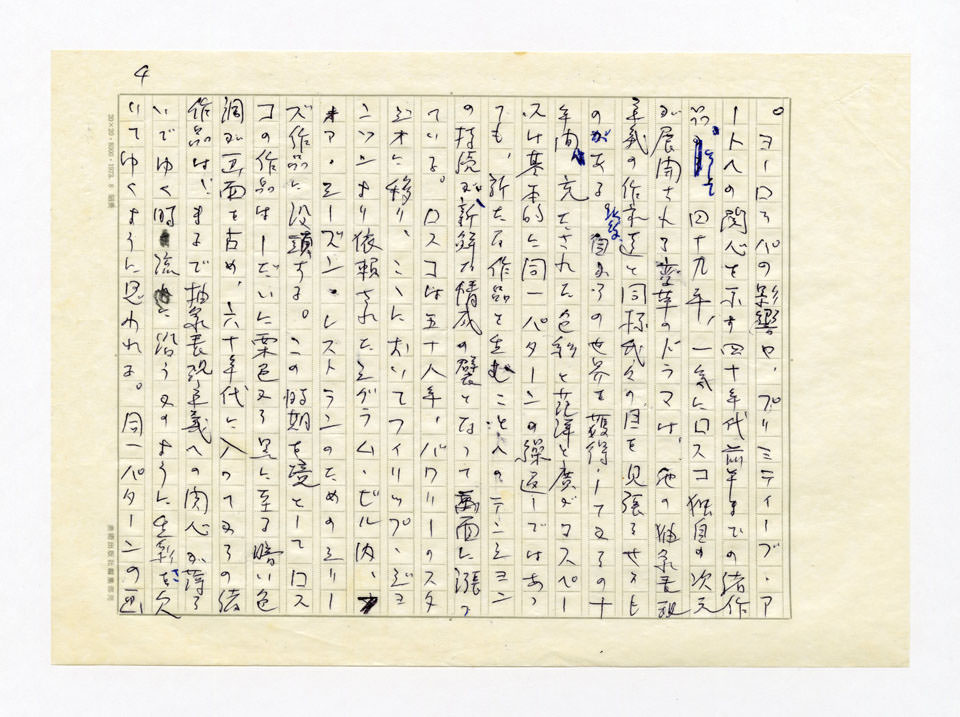 4
。ヨーロッパの影響や、プリミティーブ・ア
ートへの関心を示す四十年代前半までの諸作
品 そして四十九年、一気にロスコ独自の次元
が展開される変革のドラマは、他の抽象表現
主義の作家達と同様我々の目を見張らせるも
のがある。自からの世界を獲得してからの十
年間、充たされた色彩と茫洋と広がるスペー
スは基本的に同一パターンの繰返しではあっ
ても、新たな作品を生むことへのテンション
の持続が、新鮮な情感の襞となって画面に漲っ
ている。ロスコは五十八年、バワリーのスタ
ジオに移り、ここにおいてフィリップ・ジョ
ンソンより依頼されたシグラム・ビル内、
フォア・シーズン・レストランのためのシリー
ズ作品に没頭する。この時期を境としてロス
コの作品はしだいに栗色から黒に至る暗い色
調が画面を占め、六十年代に入ってからの諸
作品は、まるで抽象表現主義への関心が薄ら
いでゆく時流に沿うかのように生彩を欠
いてゆくように思われる。同一パターンの画
20×20・8000・1973. 8